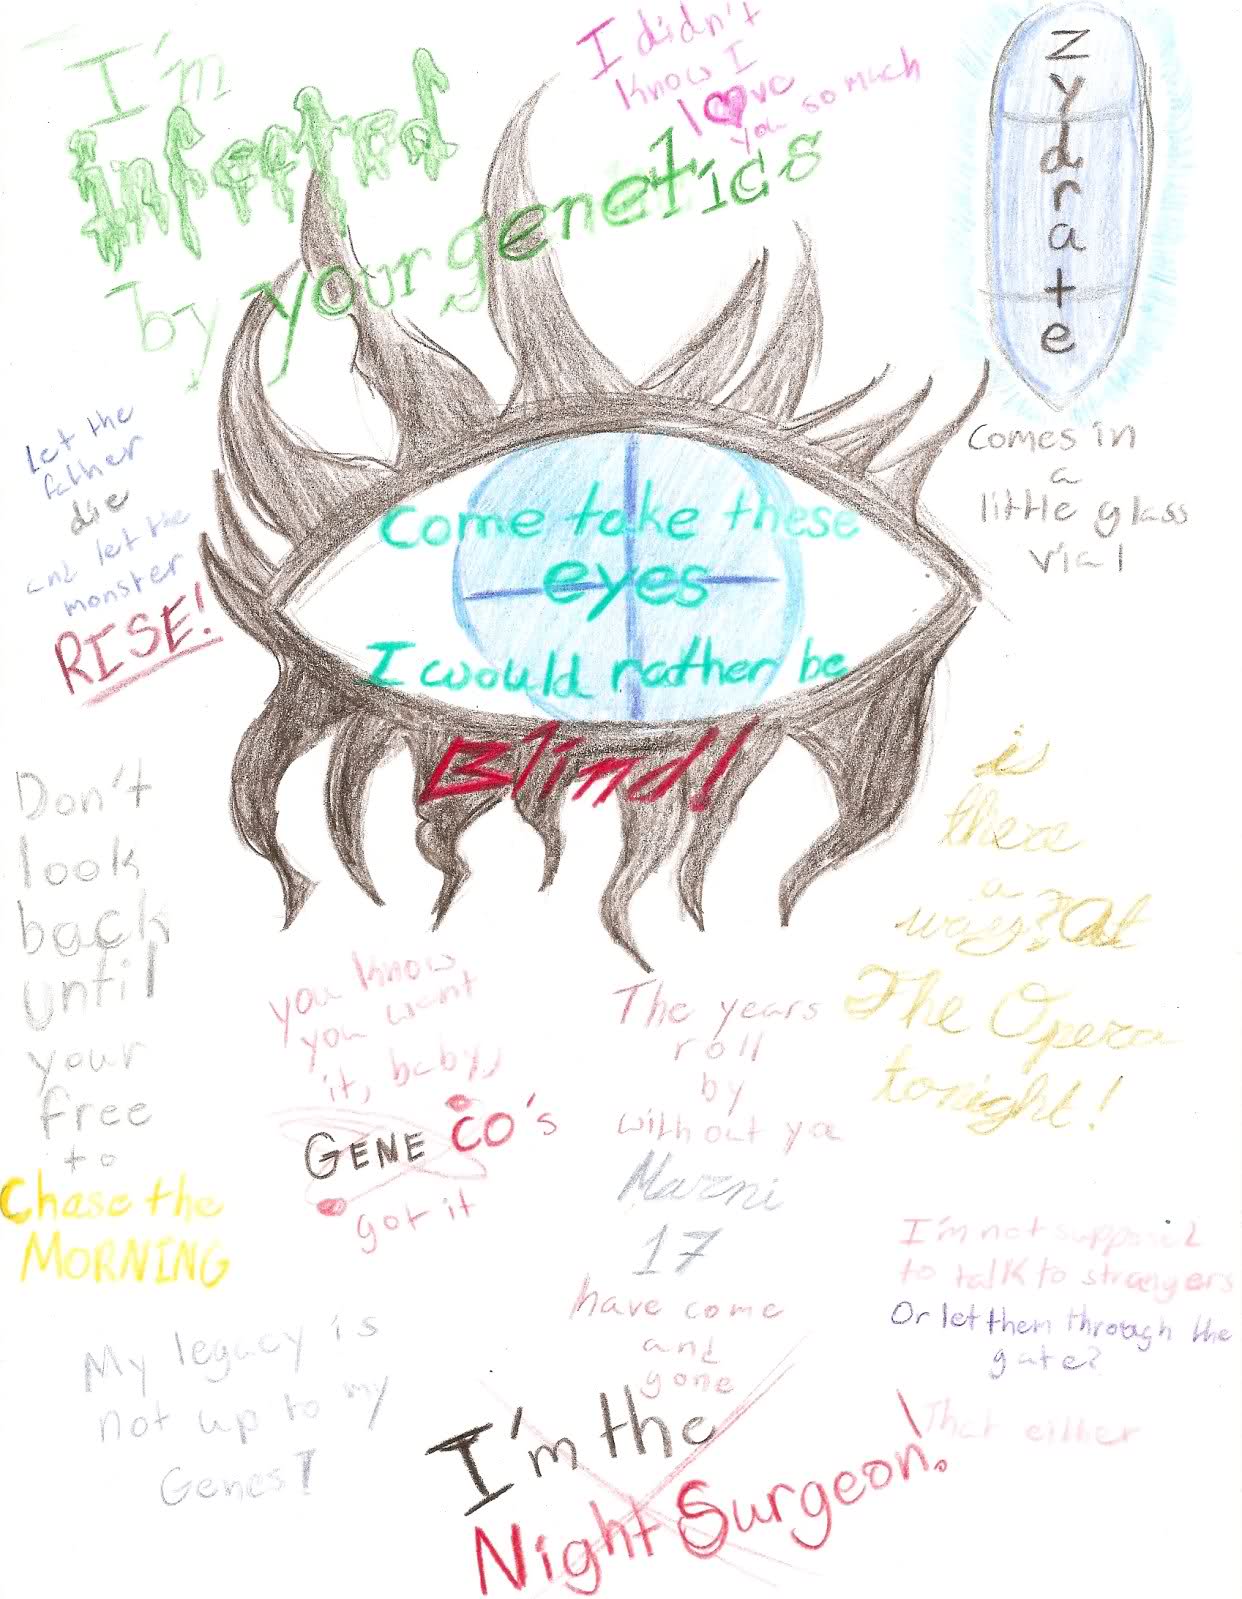 I'm
infected
by your genetics
I didn't
know I
love
you so much
Zydrate
Comes in
a
little glass
vial
Let the
father
die
and let the
monster
RISE!
Come take these
eyes
I would rather be
Blind!
Don't
look
back
until
your
free
to
Chase the
MORNING
you know
you want
it, baby,
GENE CO's
got it
The years
roll
by
without ya
Marni
17
have come
and
gone
is
there
a
way? At
The Opera
tonight!
I'm not supposed
to talk to strangers
Or let them through the
gate?
That either
My legacy is
not up to my
Genes!
I'm the
Night Surgeon!